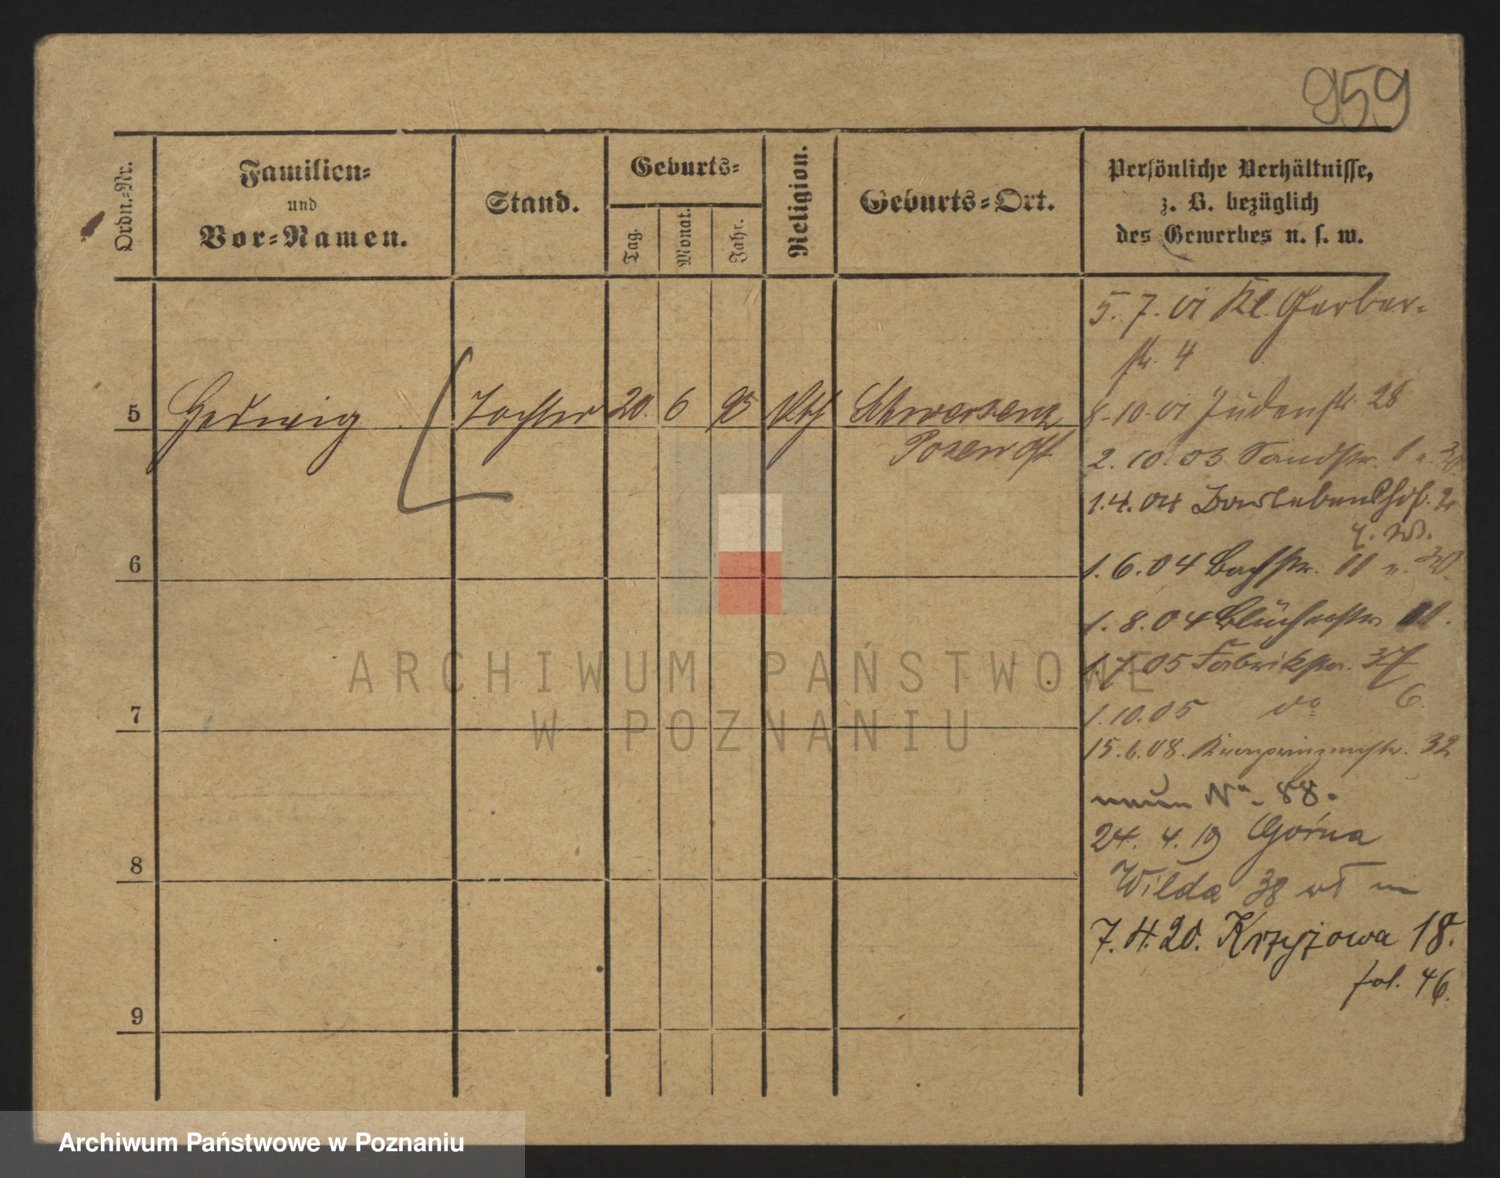 959
Ordn.-Nr.
Familien-
und
Vor-Namen.
Stand.
Geburts-
Tag.
Monat.
Jahr.
Religion.
Geburts-Ort.
Persönliche Verhältnisse,
z. B. bezüglich
des Gewerbes u. s. w.
5. 7. 01 Kl. Gerber-
str. 4
5 Hedwig Tochter 20. 6 95 Kth Schwersenz
Posen Ost
8.10.01 Judenstr. 28
2. 10. 03 Sandstr.
1.4.04 2
1. 6. 04 Bachstr. 11
6
1. 8. 04 Blücherstr 11.
1.7.05 Fabrikstr. 37
1.10.05 do 6
7
15.6.08. Kronprinzenstr. 32
No. 88.
24. 4. 19 Górna
Wilda 38
8
7.4.20. Krzyżowa 18.
fol. 46.
9
ARCHIWUM PAŃSTWOWE
W POZNANIU
Archiwum Państwowe w Poznaniu